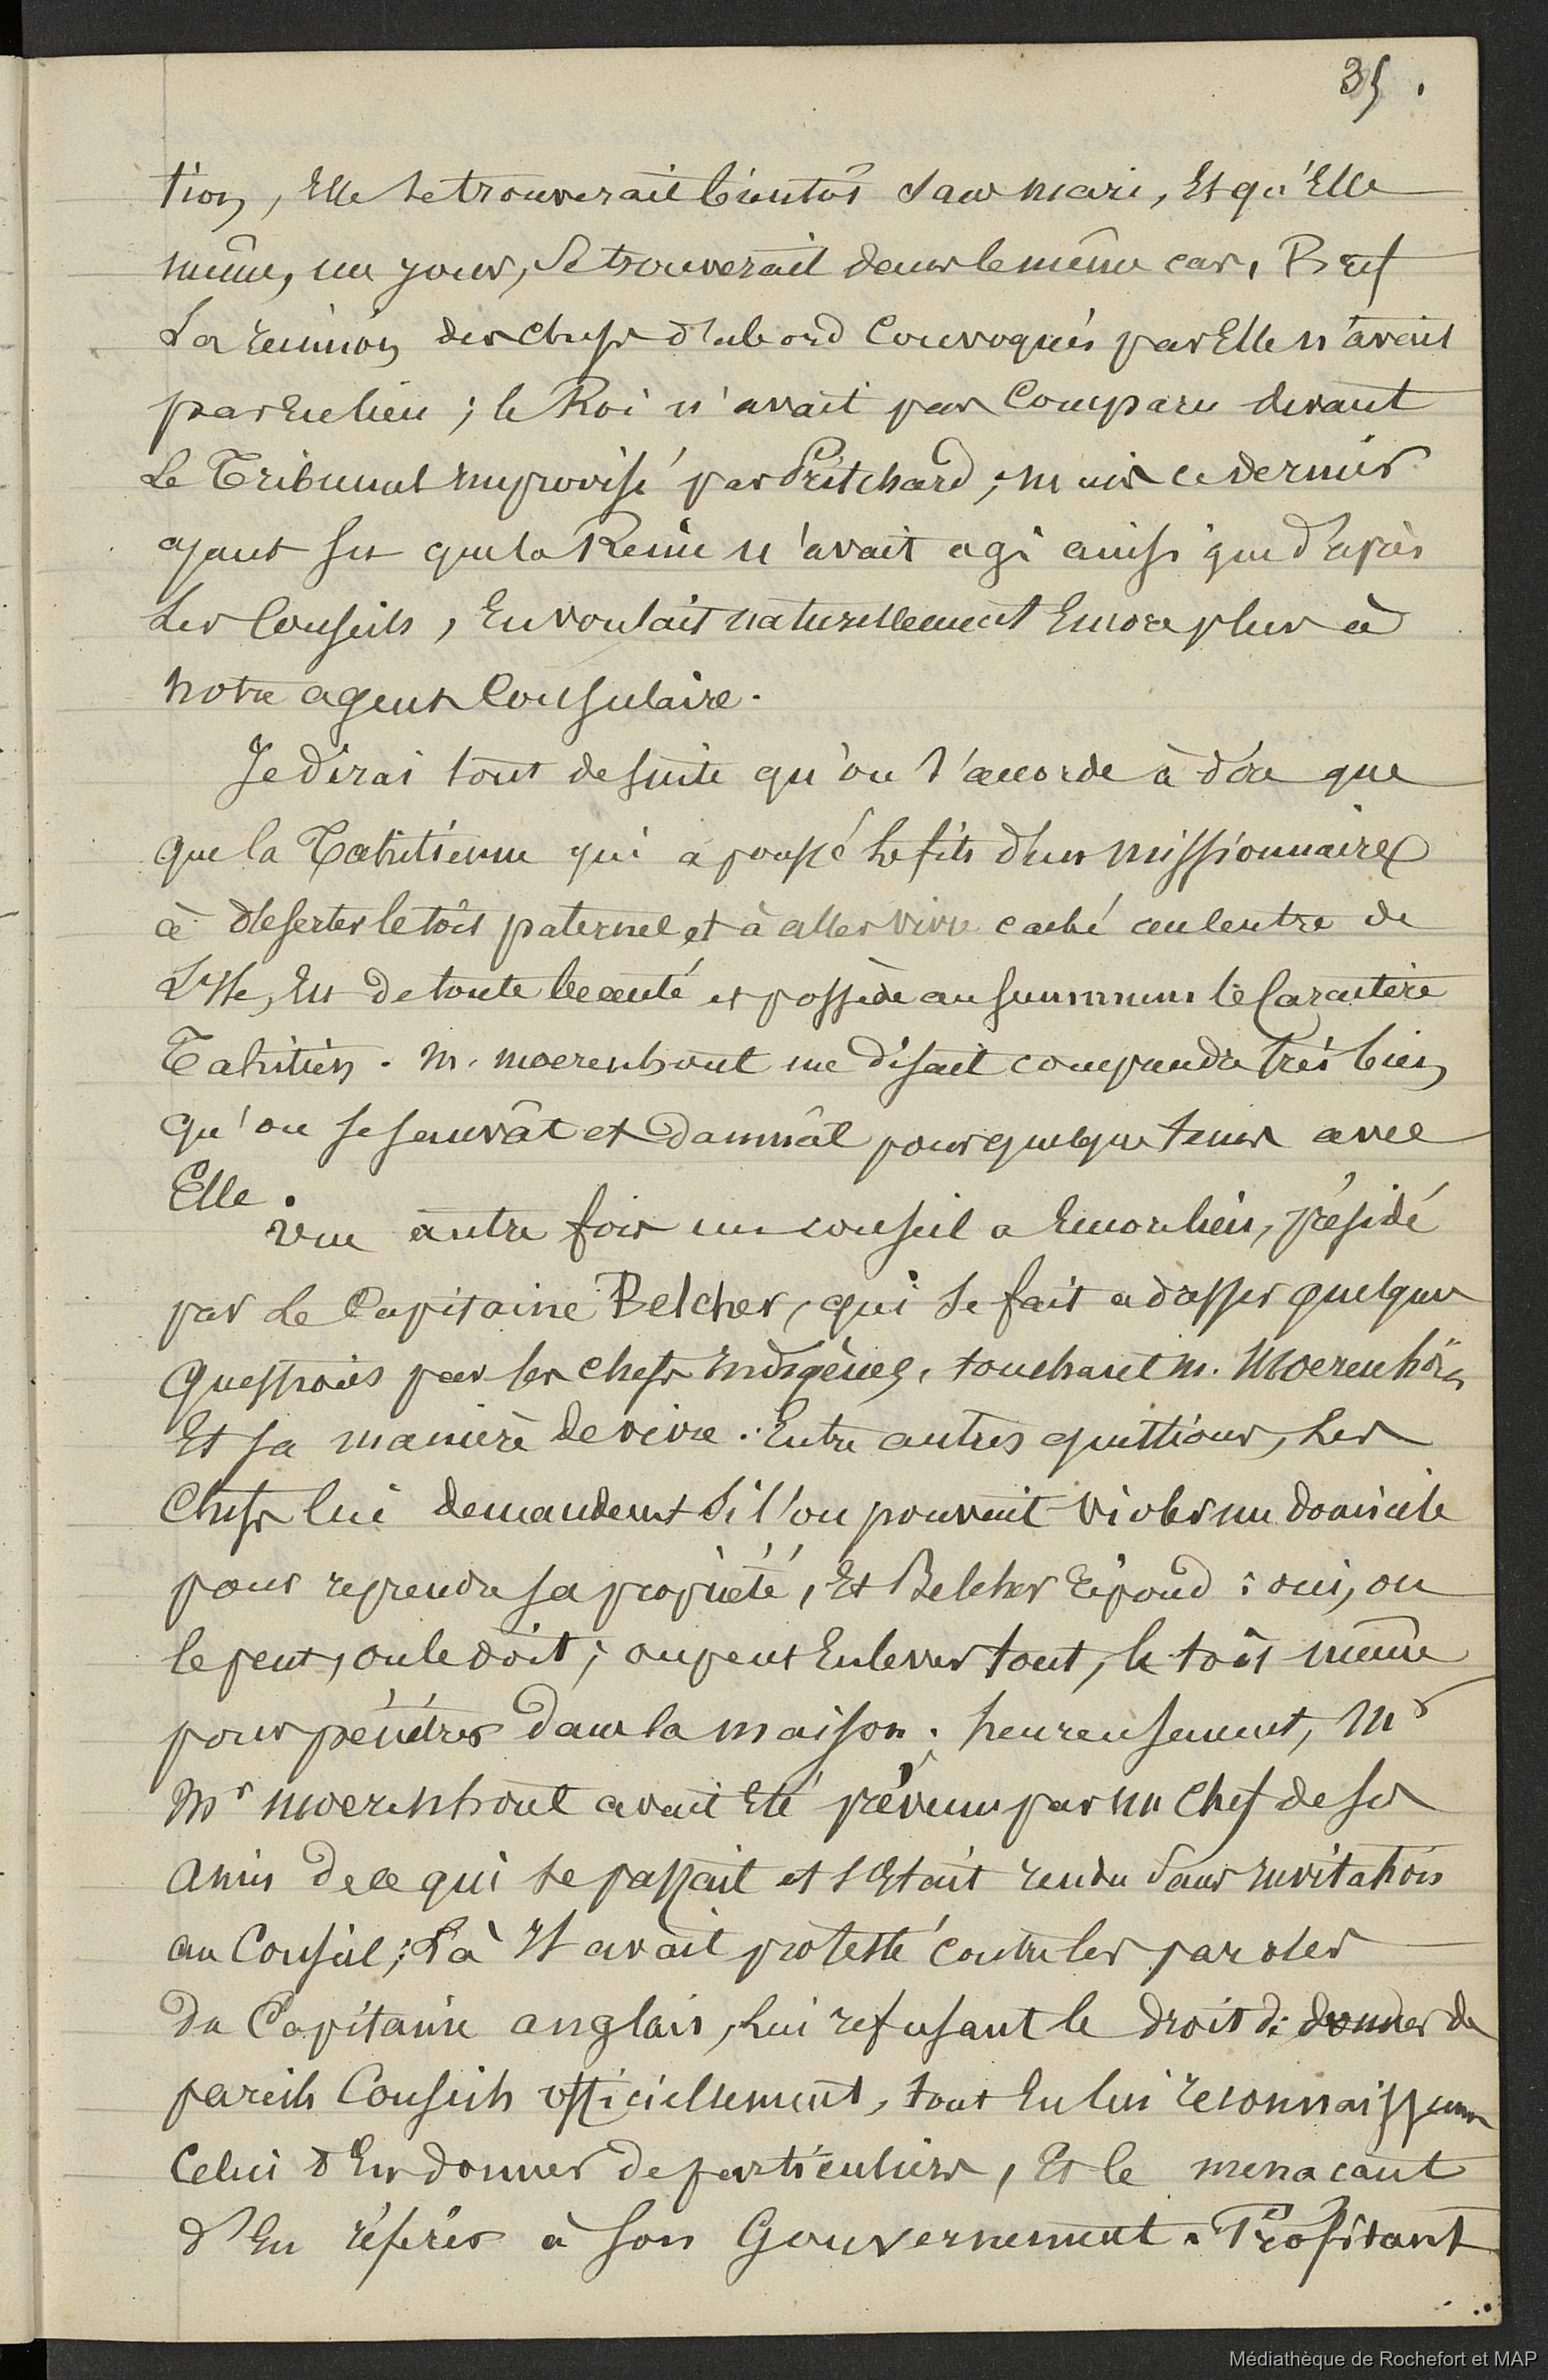 35.
tion, Elle se trouverait bientôt sans mari, Et qu'Elle
même, un jour, se trouverait dans le même cas, Bref
La réunion des chefs d'abord Convoqués par Elle n'avait
pas eu lieu ; le Roi n'avait pas Comparu devant
Le Tribunal improvisé par Pritchard ; mais ce dernier
ayant su que la Reine n'avait agi ainsi que d'après
Les Conseils, En voulait naturellement Encore plus à
notre agent Consulaire.
Je dirai tout de suite qu'on s'accorde à dire que
que la Tahitienne qui a poussé le fils d'un missionnaire
à déserter le toit paternel et à aller vivre caché au centre de
L'Ile, Est de toute beauté et possède au summum le Caractère
Tahitien. M. Moerenhout me disait comprendre très bien
qu'on se sauvât et damnât pour quelque temps avec
Elle.
Une autre fois un conseil a Encore lieu, présidé
par Le Capitaine Belcher, qui se fait adresser quelques
questions par les chefs Indigènes, touchant M. Moerenhout
Et sa manière de vivre. Entre autres questions, Les
Chefs lui demandent si l'on pouvait violer un domicile
pour reprendre sa propriété, Et Belcher répond : oui, on
le peut, on le doit ; on peut Enlever tout, le toit même
pour pénétrer dans la maison. heureusement, Mr
Mr Moerenhout avait Eté prévenu par un Chef de ses
Amis de ce qui se passait et s'Etait rendu sans invitation
au Conseil ; Là Il avait protesté contre les paroles
du Capitaine anglais, Lui refusant le droit de donner de
pareils Conseils officiellement, tout En lui reconnaissant
Celui d'En donner de particuliers, Et le menaçant
d'En référer à son Gouvernement. Profitant
Médiathèque de Rochefort et MAP